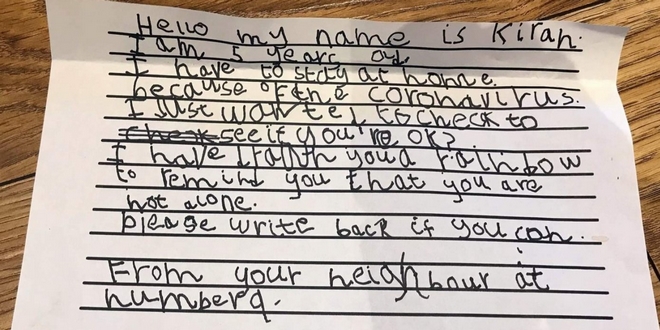 Hello my name is Kiran.
I am 5 years old.
I have to stay at home.
because of the coronavirus.
I Just wanted to check to
see if you're ok?
I have you a rainbow
to remind you that you are
not alone.
please write back if you can.
From your neighbour at
number 9.